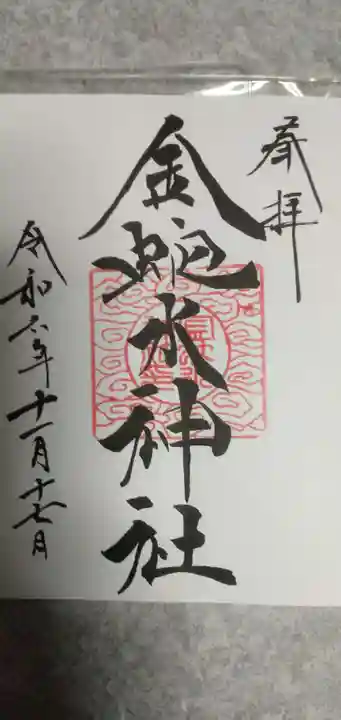 奉拝
金蛇水神社
令和六年十一月十七日